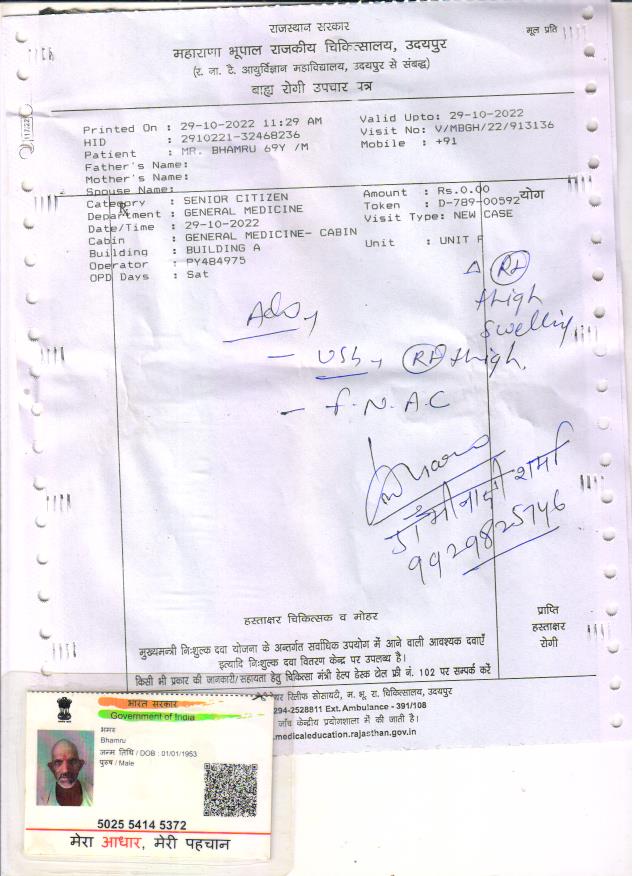 राजस्थान सरकार
मूल प्रति
महाराणा भूपाल राजकीय चिकित्सालय, उदयपुर
(र. ना. टै. आयुर्विज्ञान महाविद्यालय, उदयपुर से संबद्ध)
बाह्य रोगी उपचार पत्र
Printed On : 29-10-2022 11:29 AM
Valid Upto: 29-10-2022
HID : 2910221-32468236
Visit No: V/MBGH/22/913136
Patient : MR. BHAMRU 69Y /M
Mobile : +91
Father's Name:
Mother's Name:
Spouse Name:
Category : SENIOR CITIZEN
Amount : Rs.0.00
योग
Department : GENERAL MEDICINE
Token : D-789-00592
Date/Time : 29-10-2022
Visit Type: NEW CASE
Cabin : GENERAL MEDICINE- CABIN
Building : BUILDING A
Unit : UNIT F
Operator : PY484975
OPD Days : Sat
Δ Rt
thigh
swelling
Adv
- USG, Rt thigh.
- F.N.A.C
शर्मा
9929825746
हस्ताक्षर चिकित्सक व मोहर
प्राप्ति
हस्ताक्षर
रोगी
मुख्यमन्त्री निःशुल्क दवा योजना के अन्तर्गत सर्वाधिक उपयोग में आने वाली आवश्यक दवाएँ
इत्यादि निःशुल्क दवा वितरण केन्द्र पर उपलब्ध है।
किसी भी प्रकार की जानकारी/सहायता हेतु चिकित्सा मंत्री हेल्प डेस्क टोल फ्री नं. 102 पर सम्पर्क करें
रिलीफ सोसायटी, म. भू. रा. चिकित्सालय, उदयपुर
294-2528811 Ext. Ambulance - 391/108
जाँच केन्द्रीय प्रयोगशाला में की जाती है।
.medicaleducation.rajasthan.gov.in
भारत सरकार
Government of India
भमरु
Bhamru
जन्म तिथि / DOB : 01/01/1953
पुरुष / Male
5025 5414 5372
मेरा आधार, मेरी पहचान